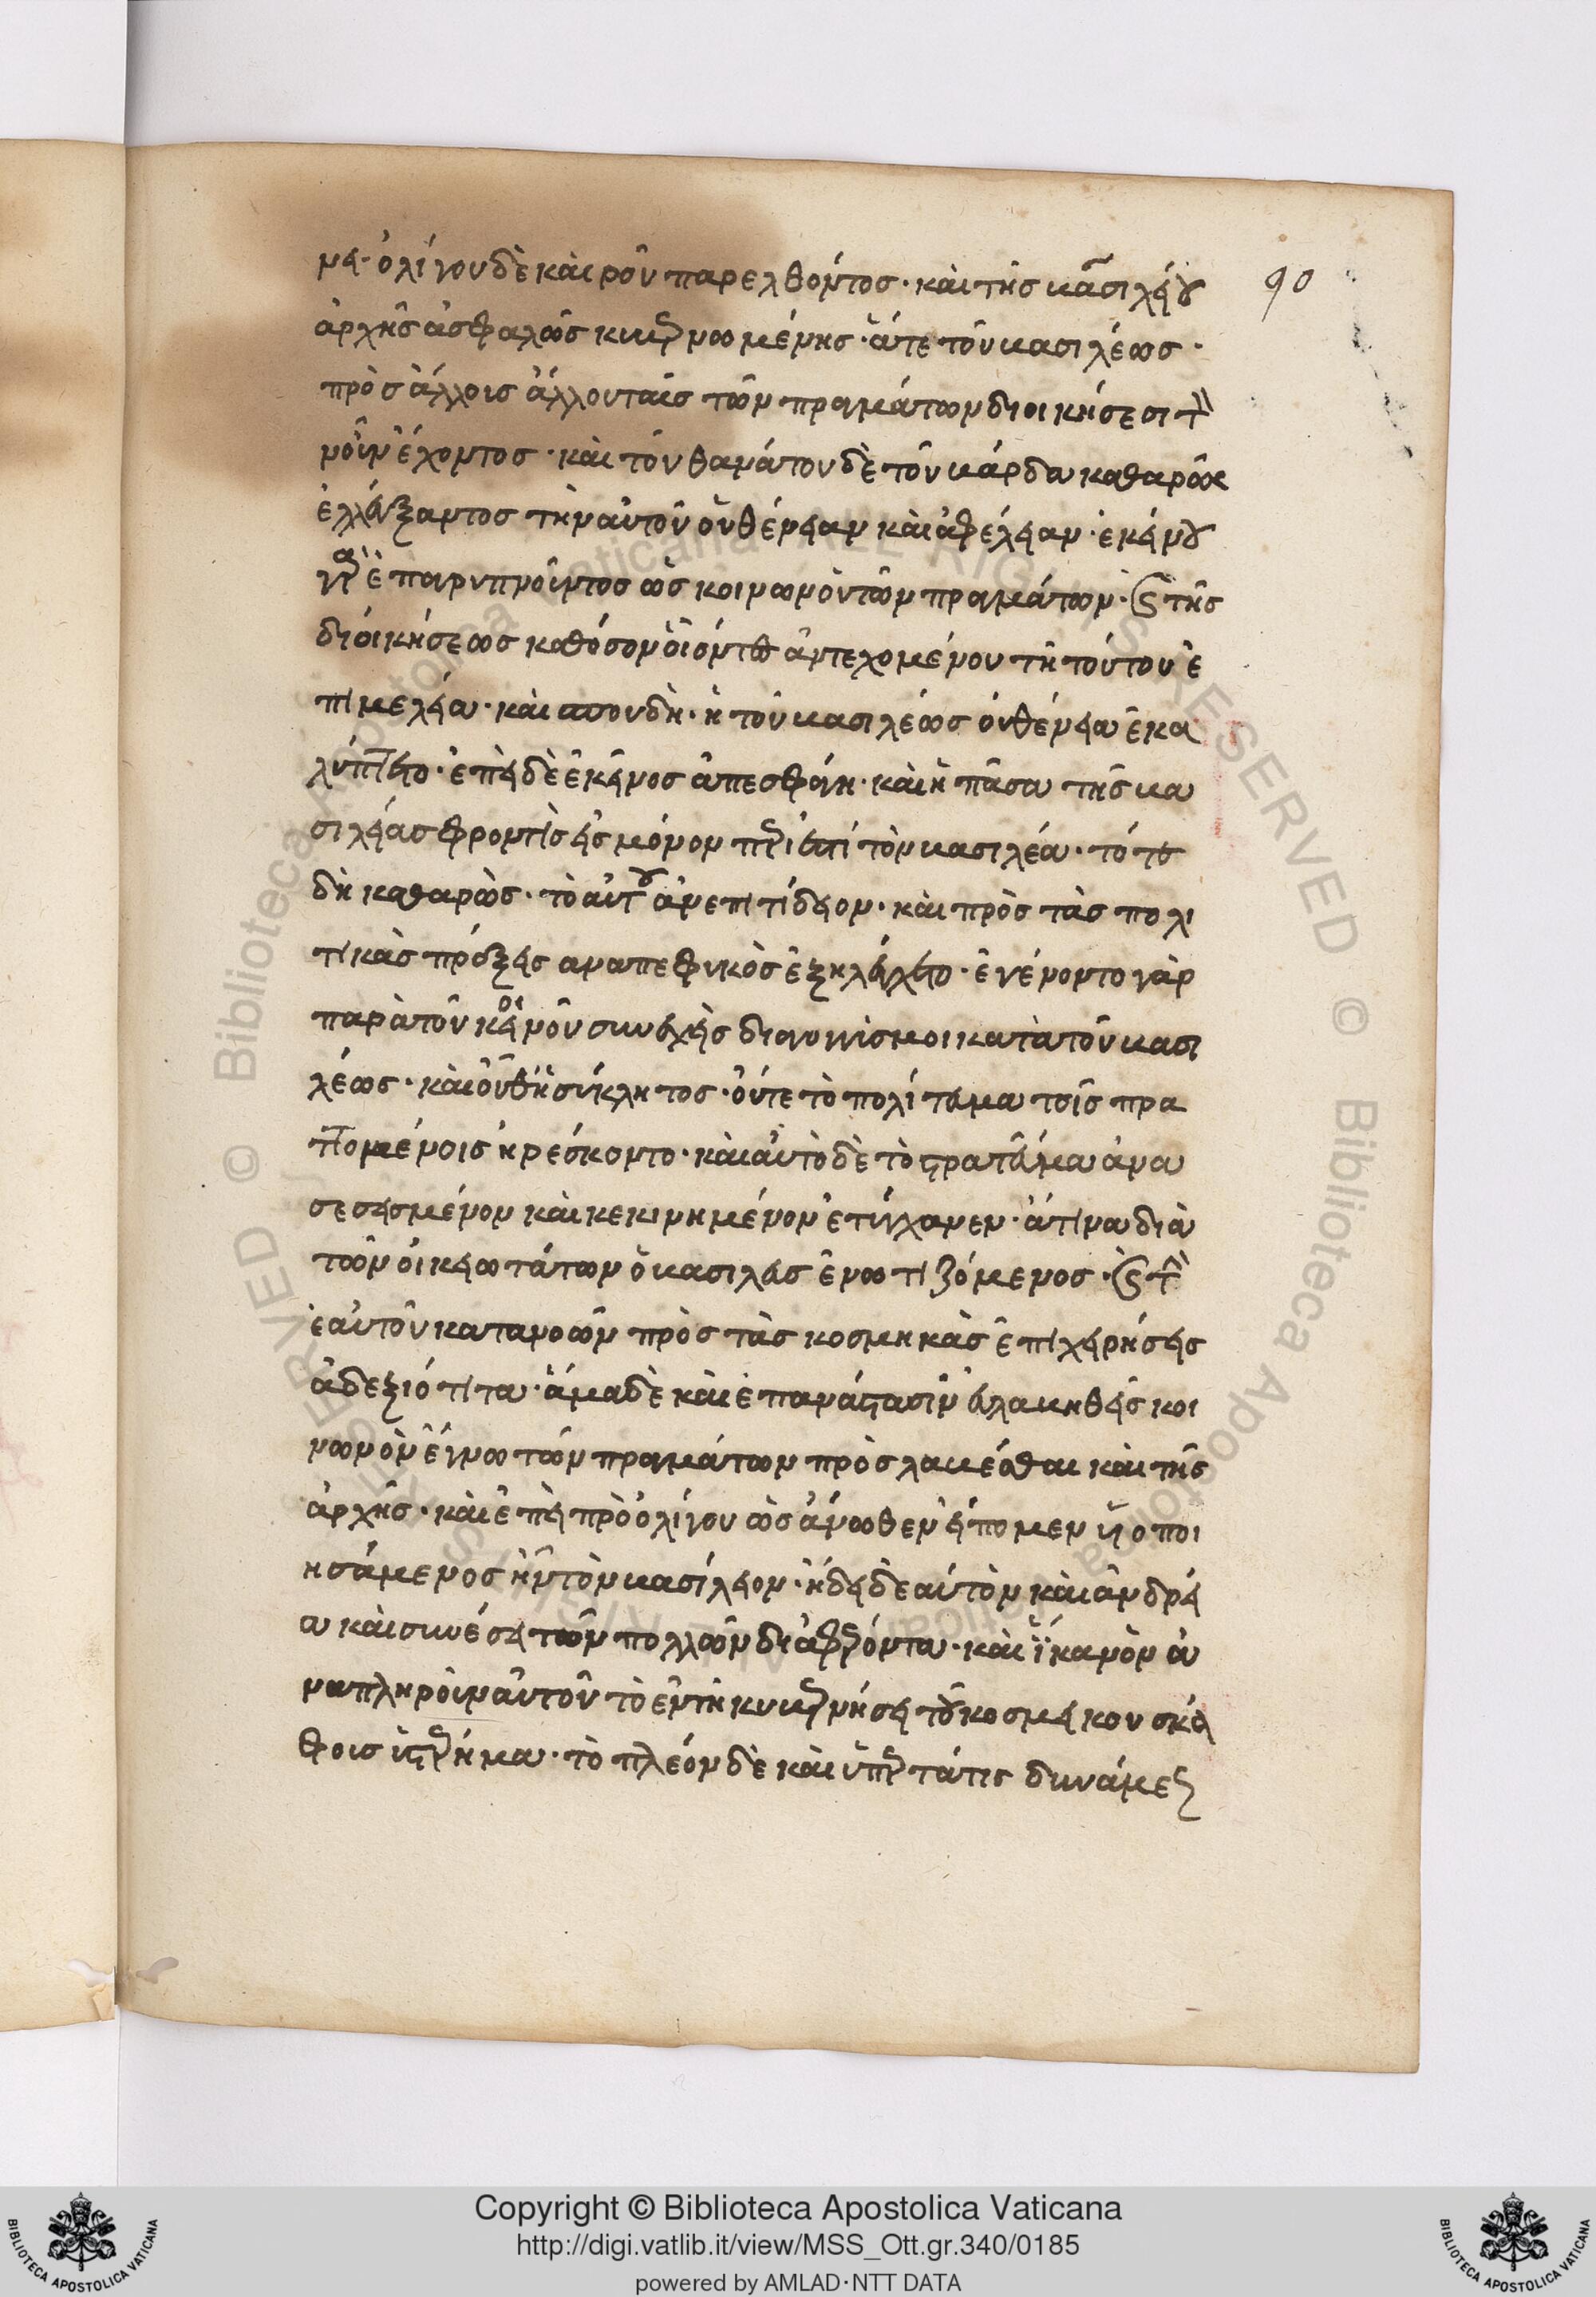 μα· ὀλίγου δὲ καιροῦ παρελθόντος· καὶ τῆς βασιλείου
90
ἀρχῆς ἀσφαλῶς κυβερνωμένης· ἅτε τοῦ βασιλέως·
πρὸς ἄλλοις ἄλλου ταῖς τῶν πραγμάτων διοικήσεσι τὸν
νοῦν ἔχοντος· καὶ τοῦ θανάτου δὲ τοῦ βάρδα καθαρῶς
ἐλλέγξαντος τὴν αὐτοῦ οὐθένειαν καὶ ἀφέλειαν· ἐκείνου
γὰρ ἐπαρυπνοῦντος ὡς κοινωνὸν τῶν πραγμάτων· καὶ τῆς
διοικήσεως καθόσον οἷόν τε ἀντεχομένου τῆ τούτου ἐ
πιμελεία· καὶ σπουδὴ· ἡ τοῦ βασιλέως οὐθένεια ἐκα
λύπτετο· ἐπεὶ δὲ ἐκεῖνος ἀπεσφάγη· καὶ ἡ πᾶσα τῆς βα
σιλείας φροντὶς εἰς μόνον περιέστι τὸν βασιλέα· τότε
δὴ καθαρῶς· τὸ αὐτοῦ ἀνεπιτίδειον· καὶ πρὸς τὰς πολι
τικὰς πράξεις αναπεφυκὸς ἐξηλέγχετο· ἐγένοντο γὰρ
παρὰ τοῦ κοινοῦ συνεχεῖς διαγογγισμοι κατὰ τοῦ βασι
λέως· καὶ οὔθ' ἡ σύγκλητος· οὔτε τὸ πολίτευμα τοῖς πρα
ττομένοις ἠρέσκοντο· καὶ αὐτὸ δὲ τὸ στρατευμα ἀνα
σεσεισμένον καὶ κεκινημένον ἐτύγχανεν· ἅτινα διὰ
τῶν οἰκειωτάτων ὁ βασιλεὺς ἐνωτιζόμενος· καὶ τὴν
ἑαυτοῦ κατανοῶν πρὸς τὰς κοσμηκὰς ἐπιχειρήσεις
ἀδεξιότιτα· ἅμα δὲ καὶ ἐπανάστασιν εὐλαβηθεὶς κοι
νωνὸν ἔγνω τῶν πραγμάτων πρὸσλαβέσθαι καὶ τῆς
ἀρχῆς· καὶ ἐπεὶ πρὸ ὀλίγου ὡς ἄνωθεν εἴπομεν υἱοποι
ησάμενος ἦν τὸν βασίλειον· ἤδει δὲ αὐτὸν καὶ ἀνδρεί
α καὶ συνέσει τῶν πολλῶν διαφέροντα· καὶ ἱκανὸν ἀ
ναπληροῦν αὐτοῦ τὸ ἐν τῆ κυβερνήσει τοῦ κοσμεικου σκά
φοις ὑστέρημα· τὸ πλέον δὲ καὶ ὑπερτάτις δυνάμεως
Copyright © Biblioteca Apostolica Vaticana
http://digi.vatlib.it/view/MSS_Ott.gr.340/0185
powered by AMLAD·NTT DATA